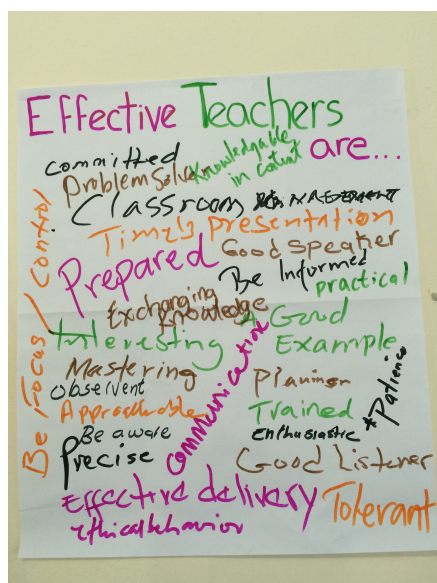 Effective Teachers
are...
committed
Knowledgable
in content
Problem Solver
Classroom MANAGEMENT
Timely presentation
Good Speaker
Prepared
Be Informed
practical
Exchanging
Knowledge
A Good
Example
Interesting
Mastering
Planner
Observent
Approachable
Trained
Patience
Be aware
Enthusiastic
Precise
communication
Good Listener
Effective delivery
Tolerant
ethical behavior
Be Focus / Control